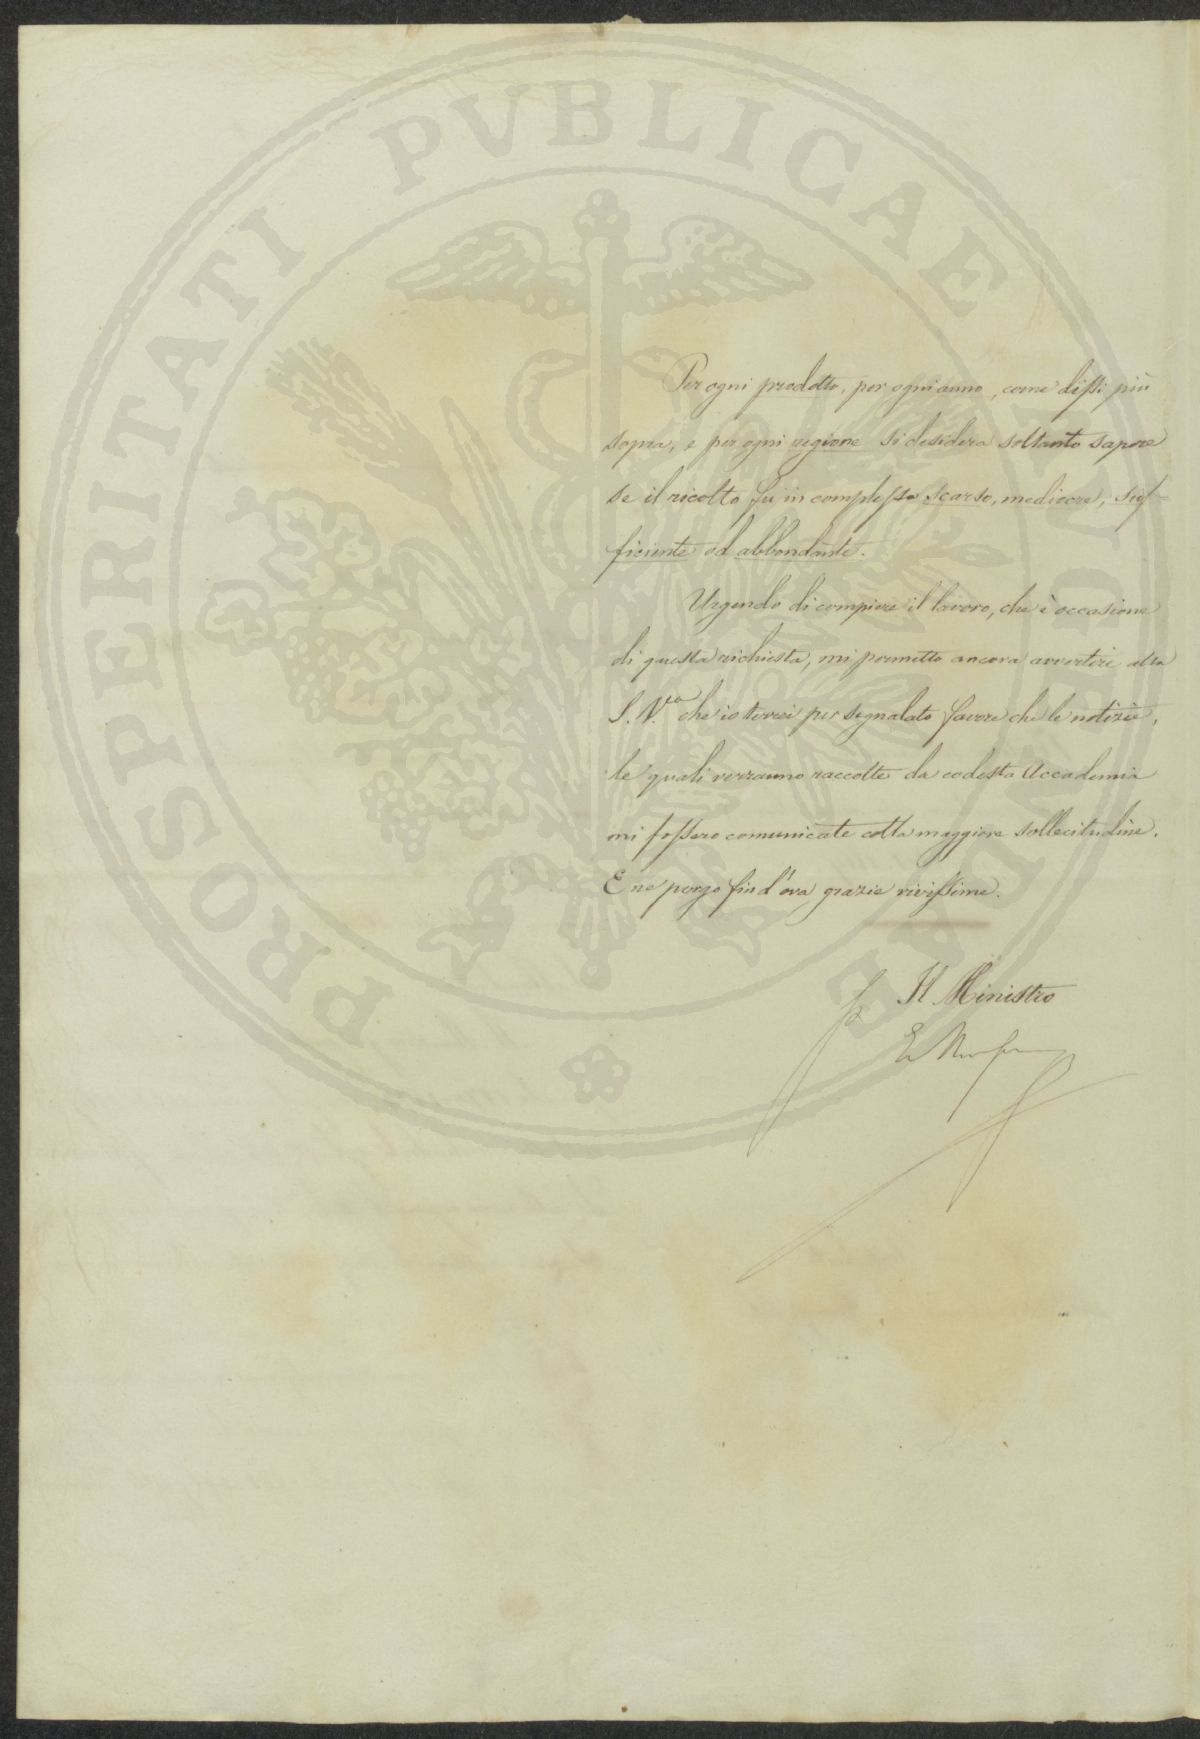 PROSPERITATI PVBLICAE AVGENDAE
Per ogni prodotto, per ogni anno, come dissi più
sopra, e per ogni regione si desidera soltanto sapere
se il ricolto fu in complesso scarso, mediocre, suf-
ficiente od abbondante.
Urgendo di compiere il lavoro, che è occasione
di questa richiesta, mi permetto ancora avvertire alla
S. V.ra che io terrei per segnalato favore che le notizie,
le quali verranno raccolte da codesta Accademia
mi fossero comunicate colla maggiore sollecitudine.
E ne porgo fin d'ora grazie vivissime.
p. Il Ministro